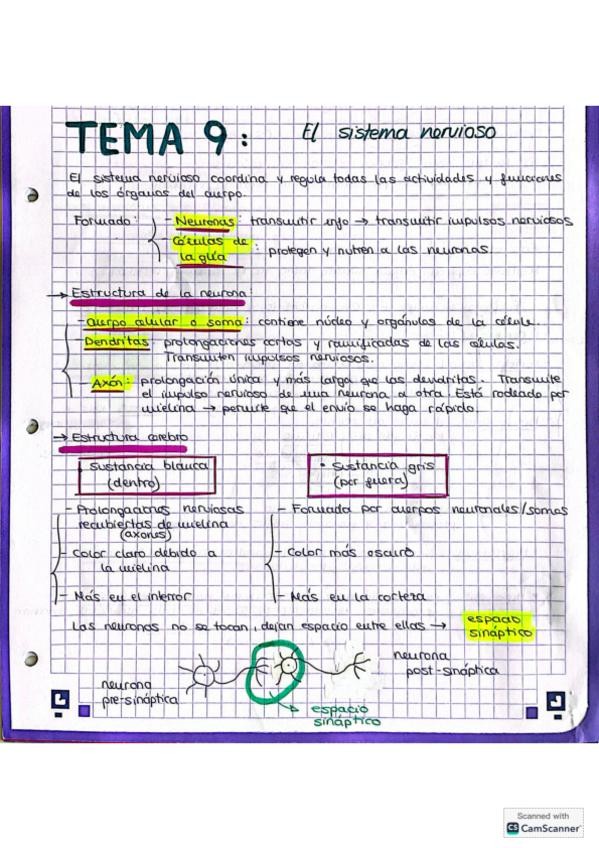 TEMA 9: El sistema nervioso
El sistema nervioso coordina y regula todas las actividades y funciones
de los órganos del cuerpo.
Formado: - Neuronas: transmitir info → transmitir impulsos nerviosos
- Células de
la glía : protegen y nutren a las neuronas.
→ Estructura de la neurona:
- Cuerpo celular o soma: contiene núcleo y orgánulos de la célula.
- Dendritas: prolongaciones cortas y ramificadas de las células.
Transmiten impulsos nerviosos.
- Axón: prolongación única y más larga que las dendritas. Transmite
el impulso nervioso de una neurona a otra. Está rodeado por
mielina → permite que el envío se haga rápido.
→ Estructura cerebro
• Sustancia blanca
(dentro)
- Prolongaciones nerviosas
recubiertas de mielina
(axones)
- Color claro debido a
la mielina
- Más en el interior
• Sustancia gris
(por fuera)
- Formada por cuerpos neuronales/somas
- Color más oscuro
- Más en la corteza
Las neuronas no se tocan, dejan espacio entre ellas → espacio
sináptico
neurona
pre-sináptica
neurona
post-sináptica
espacio
sináptico
Scanned with
CS CamScanner